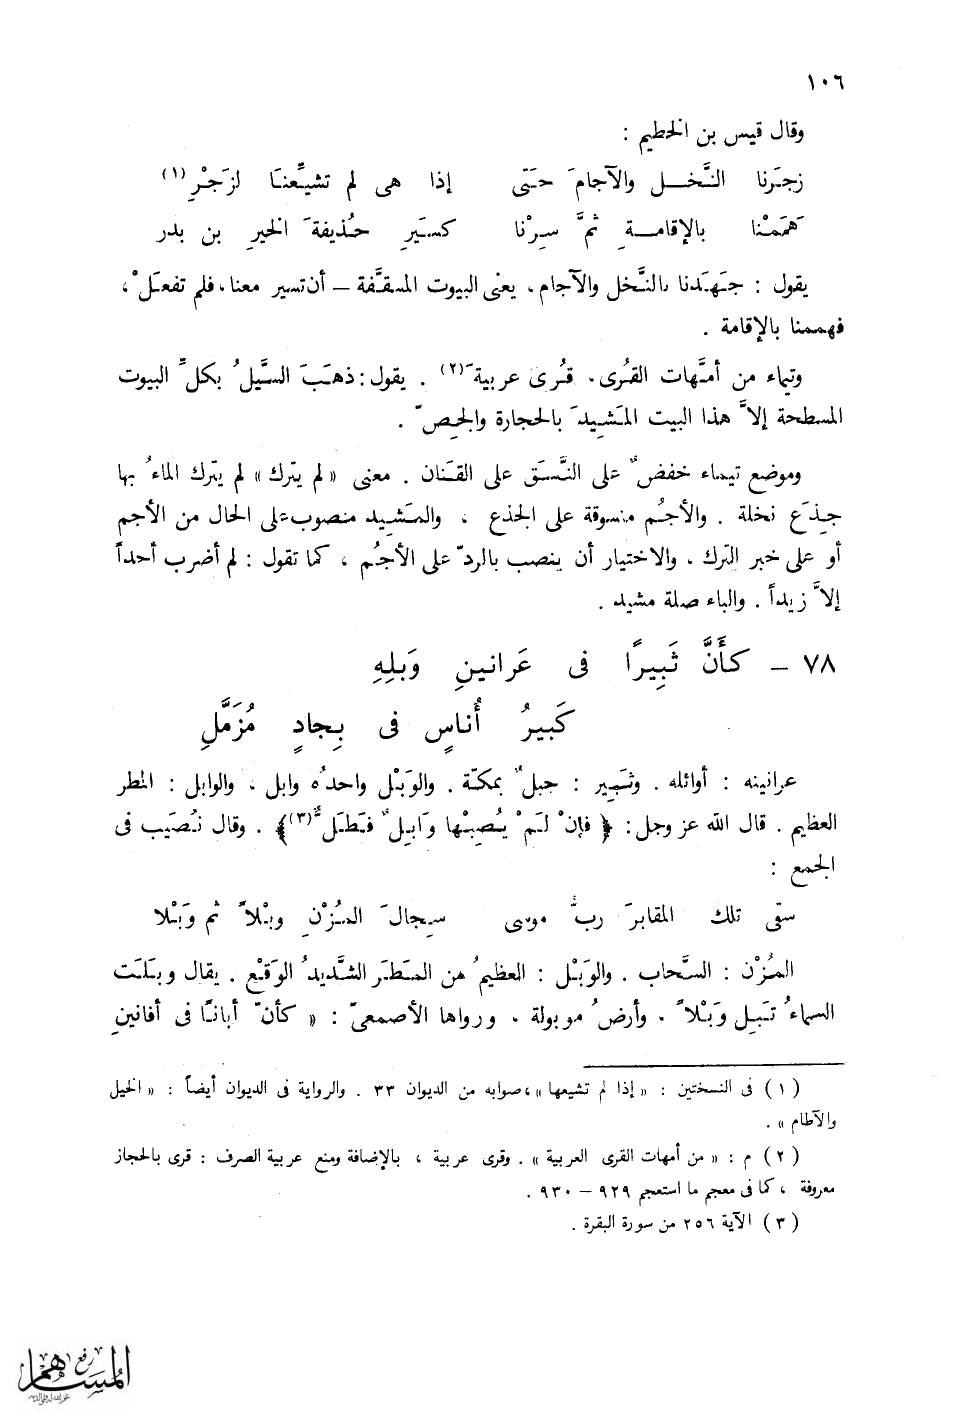 ١٠٦
وقال قيس بن الخطيم :
زجَرنا النَّخل والآجامَ حتَى إذا هى لم تشيِّعنا لزَجْرِ (١)
هَممْنا بالإقامةِ ثمَّ سِرْنا كسَيرِ حُذيفةَ الخيرِ بن بدر
يقول : جَهَدنا بالنَّخل والآجام ، يعنى البيوت المسقَّفة – أن تسير معنا ، فلم تفعَلْ ،
فهممنا بالإقامة .
وتيماء من أمَّهات القُرى ، قُرى عربيةَ (٢) . يقول : ذهَبَ السَّيلُ بكلِّ البيوت
المسطحة إلاَّ هذا البيت المَشِيدَ بالحجارة والجِصّ .
وموضع تيماء خفضٌ على النَّسَق على القَنان . معنى « لم يترك » لم يترك الماءُ بها
جِذعَ نخلة . والأجُم منسوقة على الجذع ، والمَشِيد منصوب على الحال من الأجم
أو على خبر الترك . والاختيار أن ينصب بالردّ على الأجُم ، كما تقول : لم أضرب أحداً
إلاَّ زيداً . والباء صلة مشيد .
٧٨ – كأَنَّ ثَبِيرًا فى عَرانينِ وَبلِهِ
كَبيرُ أُناسٍ فى بِجادٍ مُزَمَّلِ
عرانينه : أوائله . وثَبِير : جبلٌ بمكّة . والوَبْل واحدُه وابل ، والوابل : المطر
العظيم . قال اللّٰه عز وجل : ﴿ فإنْ لَمْ يُصِبْها وَابِلٌ فَطَلٌّ (٣)﴾ . وقال نُصَيب فى
الجمع :
سقى تلك المقابرَ ربُّ موسى سِجالَ المُزْنِ وبْلاً ثم وَبْلا
المُزْن : السَّحاب . والوَبْل : العظيمُ من المَطَر الشَّديدُ الوَقْع . يقال وبَلَت
السماءُ تَبِل وَبْلاً ، وأرضُ موبولة . ورواها الأصمعىّ : « كأنّ أبانًا فى أفانينِ
(١) فى النسختين : « إذا لم تشيعها » ، صوابه من الديوان ٣٣ . والرواية فى الديوان أيضاً : « الخيل
والآطام » .
(٢) م : « من أمهات القرى العربية » . وقرى عربية ، بالإضافة ومنع عربية الصرف : قرى بالحجاز
معروفة ، كما فى معجم ما استعجم ٩٢٩ – ٩٣٠ .
(٣) الآية ٢٥٦ من سورة البقرة .